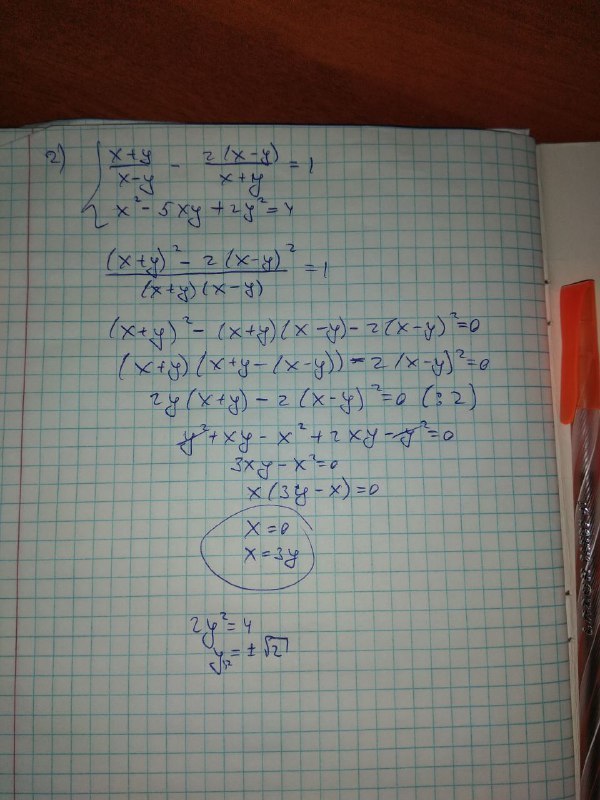 2) { (x+y)/(x-y) - 2(x-y)/(x+y) = 1
x² - 5xy + 2y² = 4
((x+y)² - 2(x-y)²)/((x+y)(x-y)) = 1
(x+y)² - (x+y)(x-y) - 2(x-y)² = 0
(x+y)(x+y-(x-y)) - 2(x-y)² = 0
2y(x+y) - 2(x-y)² = 0 (:2)
y² + xy - x² + 2xy - y² = 0
3xy - x² = 0
x(3y-x) = 0
x = 0
x = 3y
2y² = 4
y = ±√2